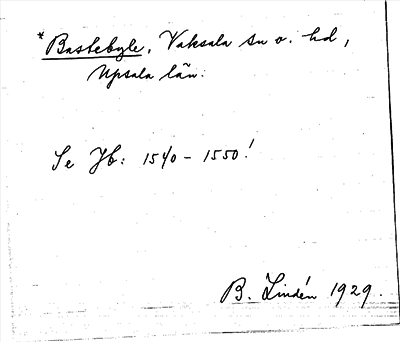 *Bastebyle, Vaksala sn o. hd,
Upsala län.
Se Jb: 1540 - 1550!
B. Lindén 1929.